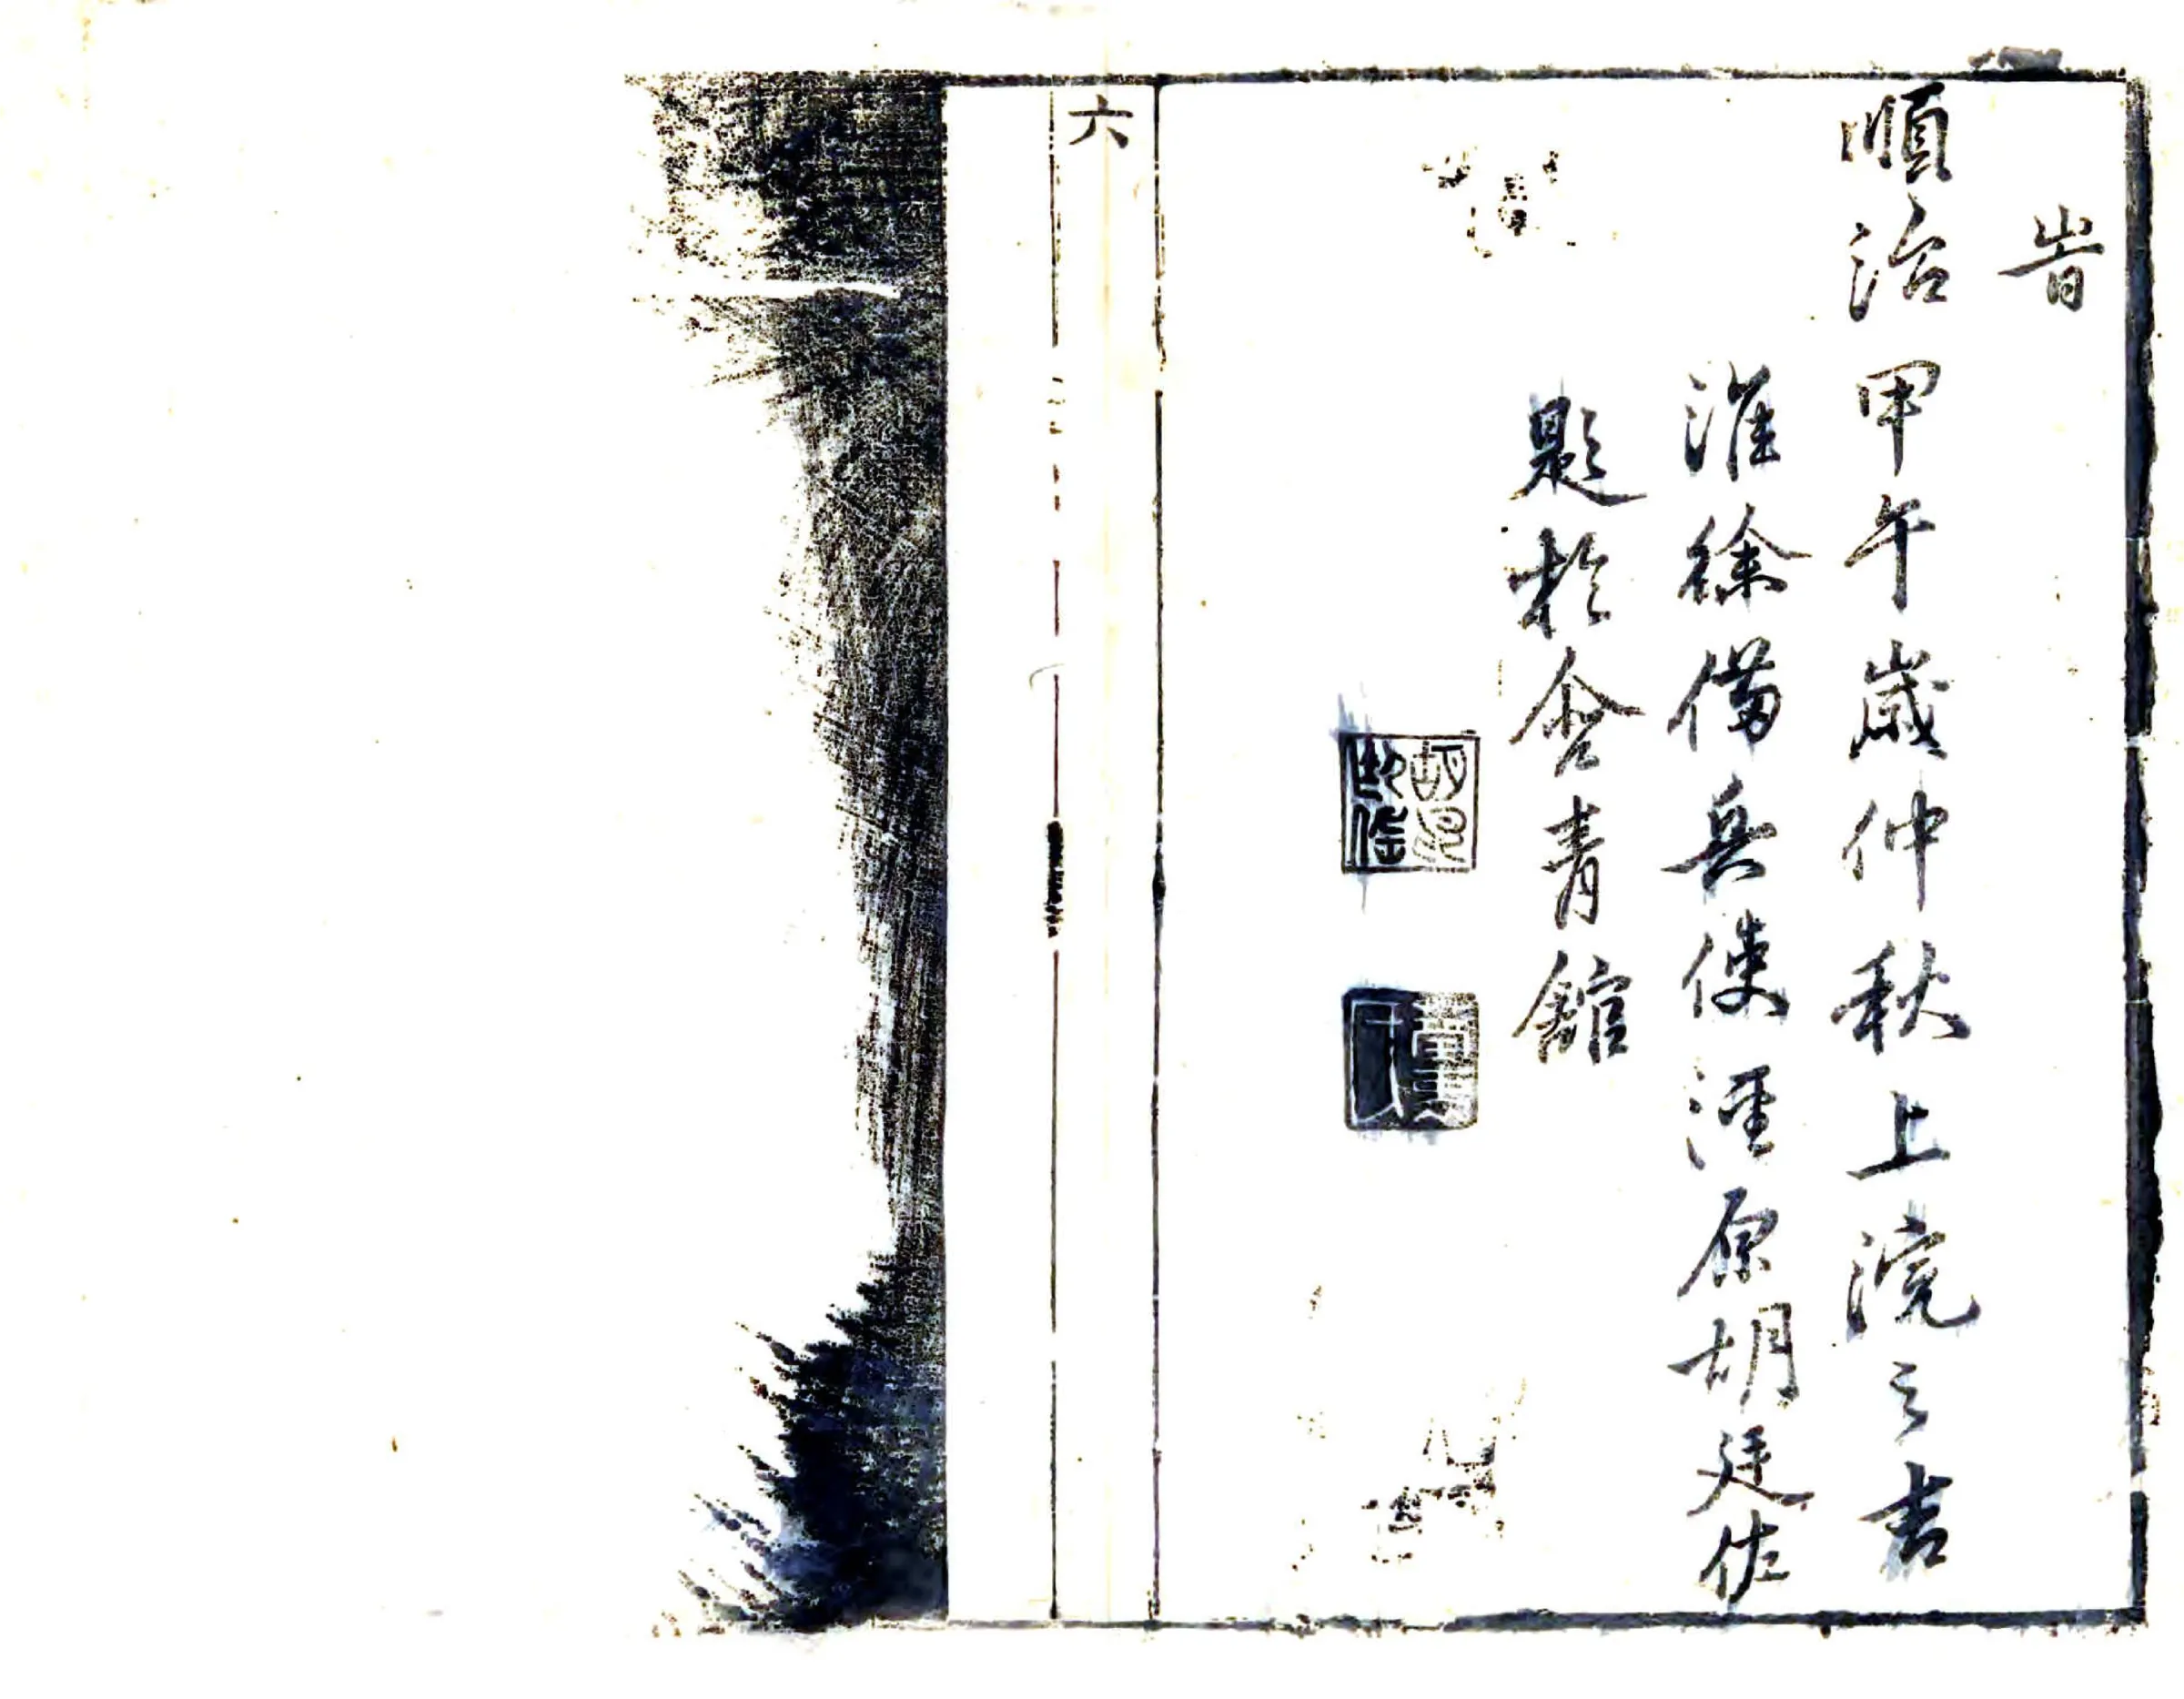 旹
順治甲午歲仲秋上浣之吉
淮徐備兵使涇原胡廷佐
題於含青舘
六